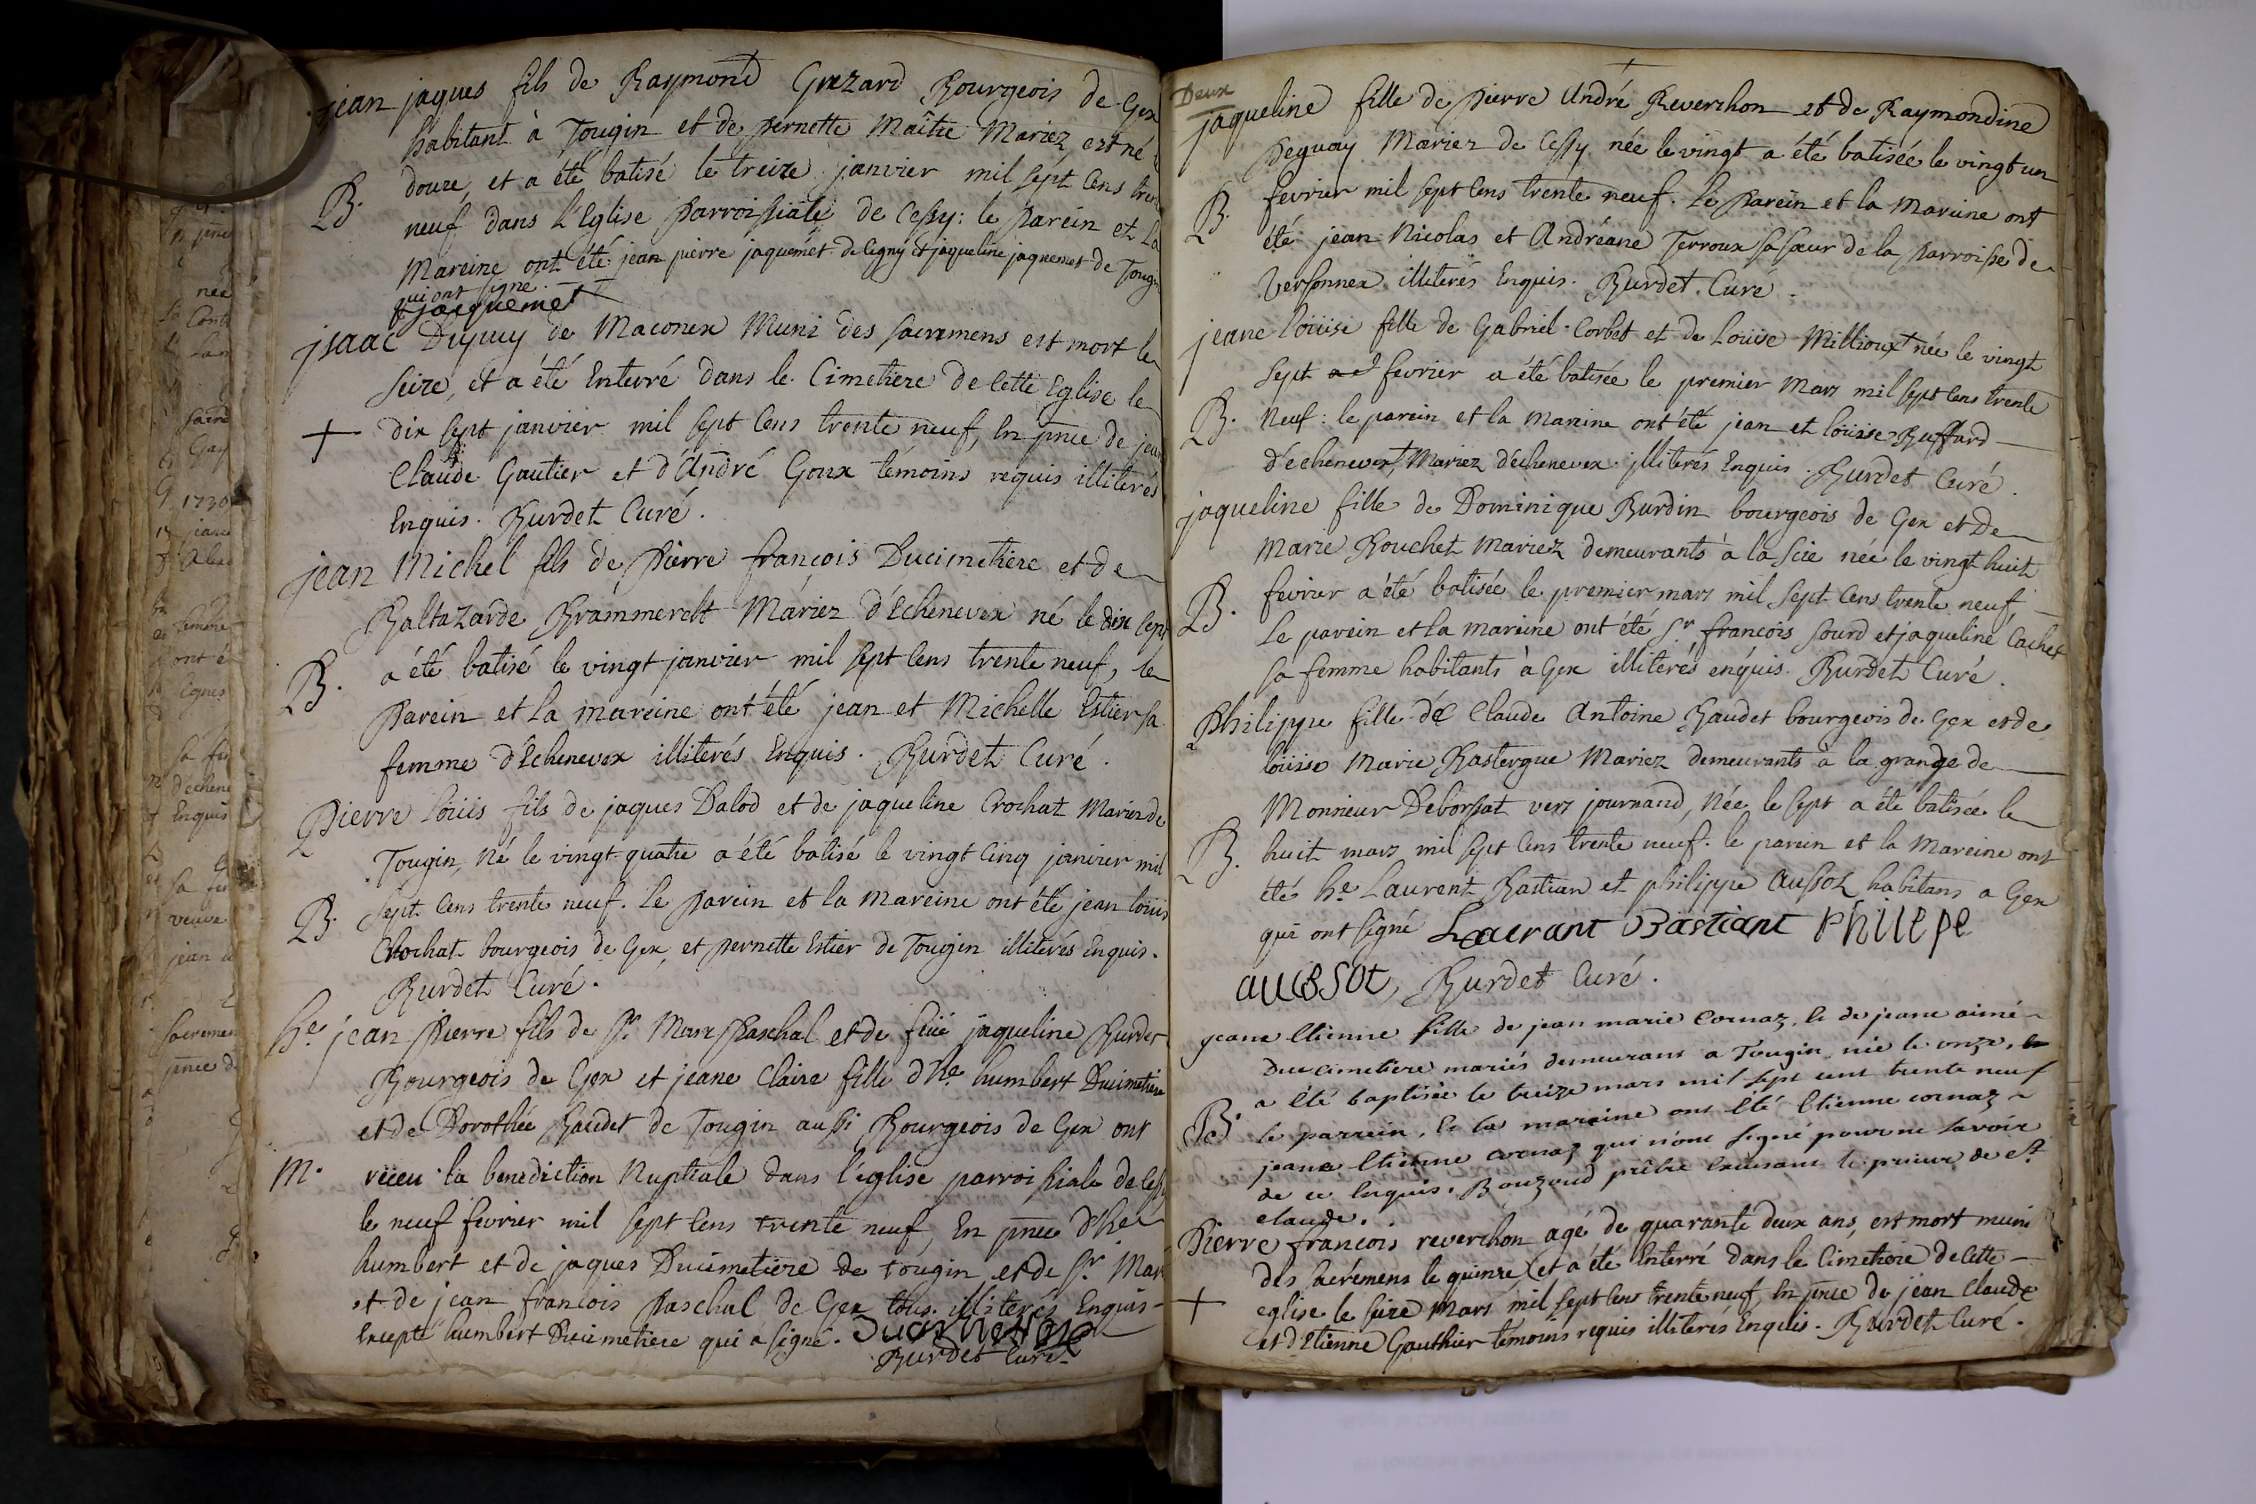 jean jaques fils de Raymond Grezard Bourgeois de Gex
habitant à Tougin et de pernette Maître Mariez, est né
douze, et a été batisé le treize janvier mil sept cens tren
B. neuf dans l'Eglise parroissiale de Cessy: le parein et la
Mareine ont été jean pierre jaquemet de Segny et jaqueline jaquemet de Tougin
qui ont signé.
jaquemet
jsaac Dupuy de Maconex Muni des sacremens est mort le
seize, et a été Enterré dans le Cimetiere de Cette Eglise le
+ dix sept janvier mil sept Cens trente neuf, En pnce de jean
Claude Gautier et d'André Goux témoins requis illiterés
Enquis. Burdet Curé.
jean Michel fils de Pierre françois Ducimetiere et de
Baltazarde Brammerelt Mariez d'Echenevex né le dix sept
a été batisé le vingt janvier mil sept Cens trente neuf, le
B. Parein et la mareine ont été jean et Michelle Estier sa
femme d'Echenevex illiterés Enquis. Burdet Curé.
Pierre loüis fils de jaques Dalod et de jaqueline Crochat Mariez de
Tougin, Né le vingt quatre a été batisé le vingt Cinq janvier mil
B. sept Cens trente neuf. Le Parein et la mareine ont été jean loüis
Crochat bourgeois de Gex, et pernette Estier de Tougin illiterés Enquis.
Burdet Curé.
he. jean pierre fils de Sr. Marx Paschal et de feüe jaqueline Burdet
Bourgeois de Gex et jeane Claire fille d'he. humbert Ducimetiere
et de Dorothée Baudet de Tougin aussi Bourgeois de Gex ont
M. reçeu la benediction Nuptiale dans l'église parroissiale de Cessy
le neuf fevrier mil sept Cens trente neuf, En pnce d'he.
humbert et de jaques Ducimetiere de tougin, et de Sr. Mar
et de jean francois Paschal de Gex tous illiterés Enquis
Excepté humbert Ducimetiere qui a signé. Ducimetiere
Burdet Curé.
Deux
jaqueline fille de pierre André Reverchon et de Raymondine
Peguay Mariez de Cessy née le vingt a été batisée le vingt un
B. fevrier mil sept Cens trente neuf. Le Parein et la Mareine ont
été jean Nicolas et Andréane Terroux sa sœur de la parroisse de
Versonnex illiterés Enquis. Burdet. Curé.
jeane loüise fille de Gabriel Corbet et de loüise Millioux née le vingt
sept fevrier a été batisée le premier Mars mil sept Cens trente
B. Neuf: le parein et la Mareine ont été jean et loüise Buffard
d'echenevex, Mariez d'echenevex illiterés Enquis. Burdet Curé.
jaqueline fille de Dominique Burdin bourgeois de Gex et De
Marie Bouchet Mariez demeurants à la Scie née le vingt huit
B. fevrier a été batisée le premier mars mil sept Cens trente neuf
Le parein et la mareine ont été Sr. francois Sourd et jaqueline Cachet
sa femme habitants à Gex illiterés enquis. Burdet Curé.
Philippe fille de Claude Antoine Baudet bourgeois de Gex et de
loüise Marie Bastergue Mariez demeurants à la grange de
Monsieur Deborssat vers journand, Née le sept a été batisée le
B. huit mars mil sept Cens trente neuf. le parein et la Mareine ont
été he. Laurent Bastian et philippe Aussot habitans a Gex
qui ont signé Laurant Bastiant Philepe
aussot, Burdet Curé.
jeane Etienne fille de jean marie Cornaz, & de jeane aimé
Ducimetiere mariés demeurans a Tougin née le onze,
a été baptisée le treize mars mil sept cent trente neuf
B. le parrein, & la mareine ont été Etienne cornaz
jeane Etienne cornaz qui n'ont signé pour ne savoir
de ce Enquis. Bouzoud prêtre Excusant le prieur de St.
claude.
Pierre francois reverchon agé de quarante deux ans, est mort muni
des sacremens le quinze, et a été Enterré dans le Cimetiere de Cette
+ eglise le seize Mars mil sept Cens trente neuf En pnce de jean Claude
et d'Etienne Gauthier témoins requis illiterés Enquis. Burdet Curé.